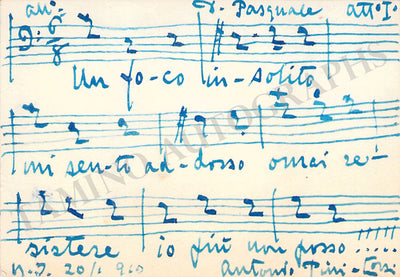 D. Pasquale atto I°
6
8
Un fo-co in-solito
mi sen-to ad-dosso omai re-
sistere io più non posso !!!!!
N.Y. 20/1 910 Antonio Pini-Corsi
TAMINO AUTOGRAPHS